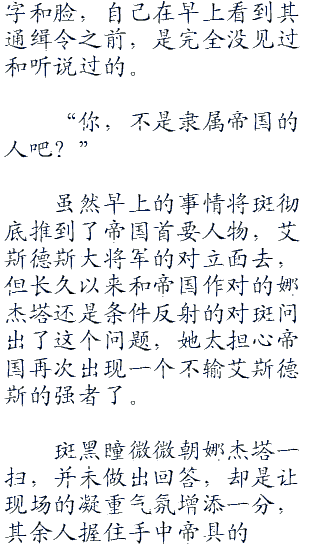 字和脸，自己在早上看到其
通缉令之前，是完全没见过
和听说过的。
“你，不是隶属帝国的
人吧？”
虽然早上的事情将斑彻
底推到了帝国首要人物，艾
斯德斯大将军的对立面去，
但长久以来和帝国作对的娜
杰塔还是条件反射的对斑问
出了这个问题，她太担心帝
国再次出现一个不输艾斯德
斯的强者了。
斑黑瞳微微朝娜杰塔一
扫，并未做出回答，却是让
现场的凝重气氛增添一分，
其余人握住手中帝具的